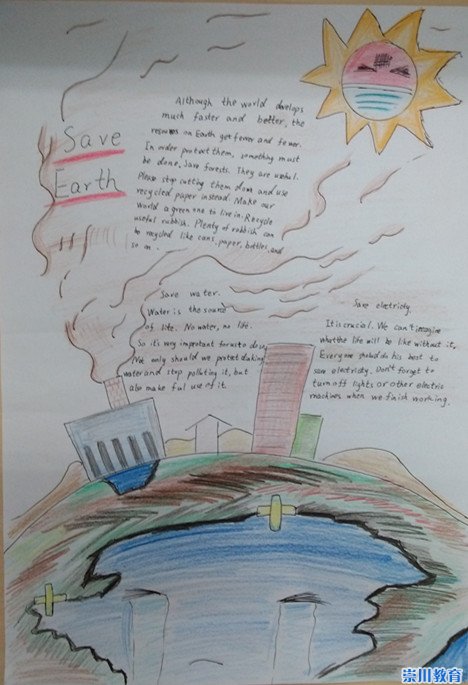 Save
Earth
Although the world develops
much faster and better, the
resources on Earth get fewer and fewer.
In order protect them, something must
be done. Save forests. They are useful.
Please stop cutting them down and use
recycled paper instead. Make our
world a green one to live in. Recycle
useful rubbish. Plenty of rubbish can
be recycled like cans, paper, bottles, and
so on.
Save water.
Water is the source
of life. No water, no life.
So it's very important for us to do so.
Not only should we protect dinking
water and stop polluting it, but
also make ful use of it.
Save electricity.
It is crucial. We can't imagine
what the life will be like without it.
Everyone should do his best to
save electricity. Don't forget to
turn off lights or other electric
machines when we finish working.
崇川教育